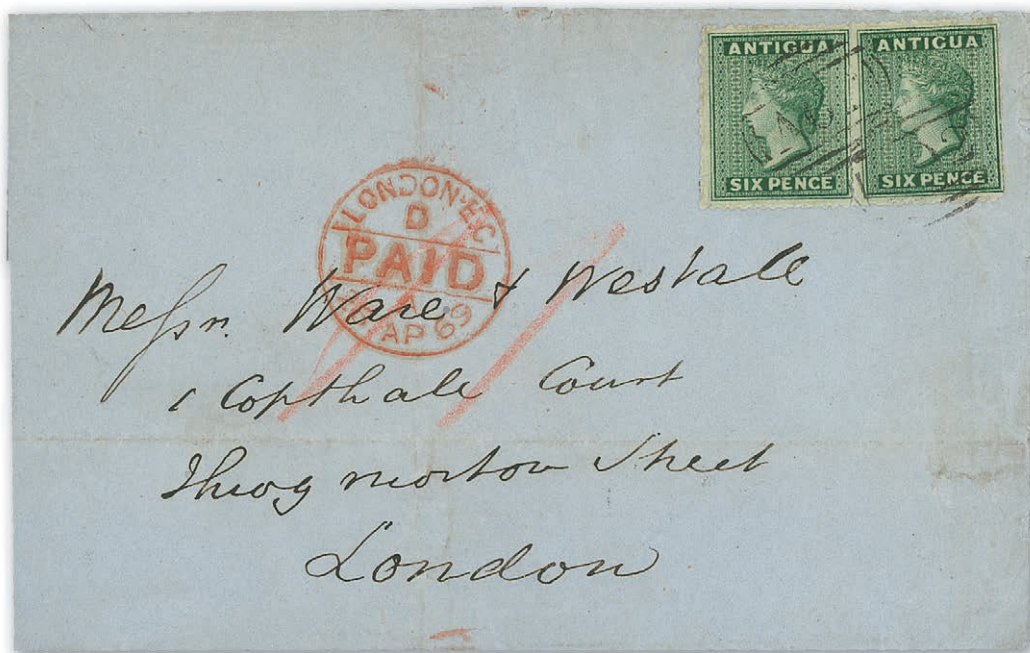 ANTIGUA ANTIGUA
SIX PENCE SIX PENCE
LONDON·EC
D
PAID
A
AP 69
Messrs. Ware & Westale
1 Copthale Court
Throgmorton Street
London